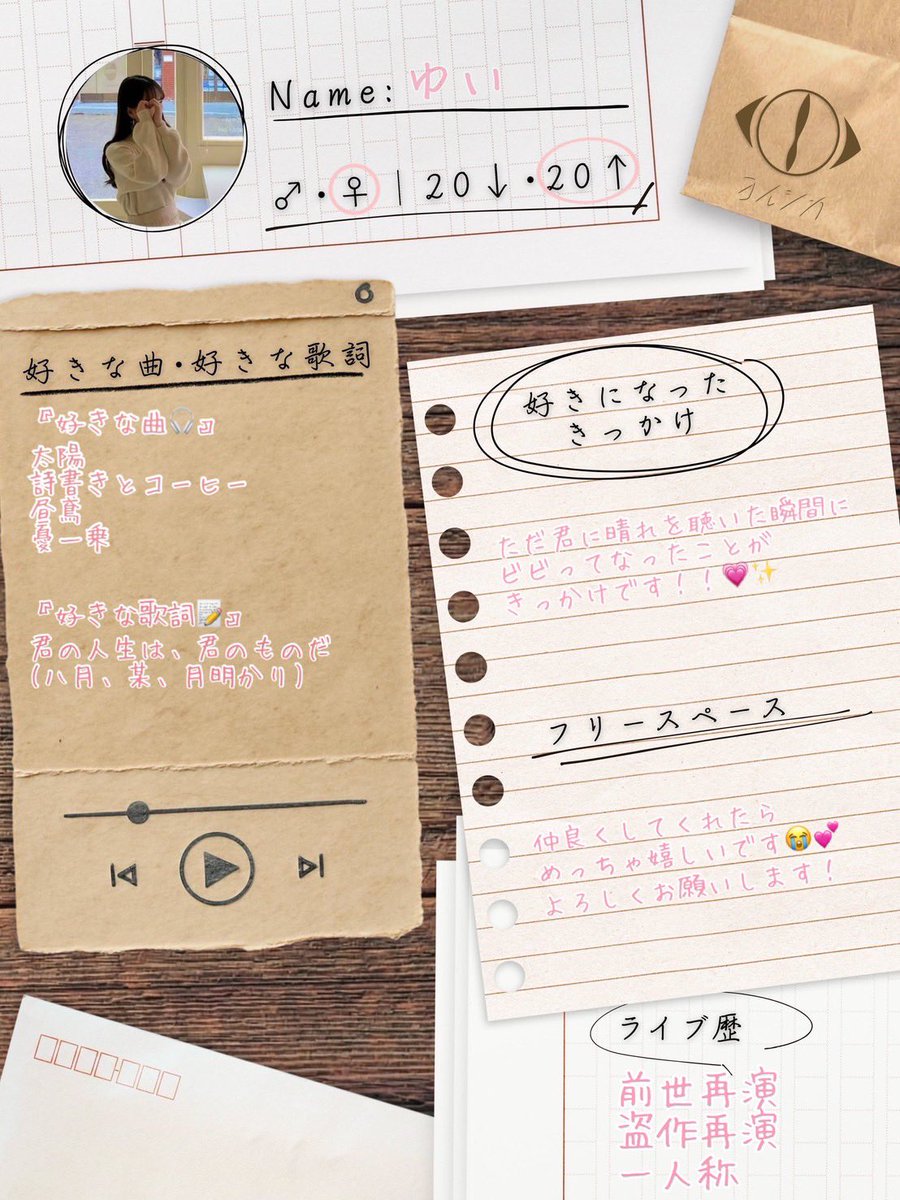 Name: ゆい
♂・♀|20↓・20↑
ヨルシカ
6
好きな曲・好きな歌詞
『好きな曲🎧』
太陽
詩書きとコーヒー
昼鳶
憂一乗
『好きな歌詞📝』
君の人生は、君のものだ
(八月、某、月明かり)
好きになった
きっかけ
ただ君に晴れを聴いた瞬間に
ビビってなったことが
きっかけです!!💗✨
フリースペース
仲良くしてくれたら
めっちゃ嬉しいです😭💕
よろしくお願いします!
ライブ歴
前世再演
盗作再演
一人称